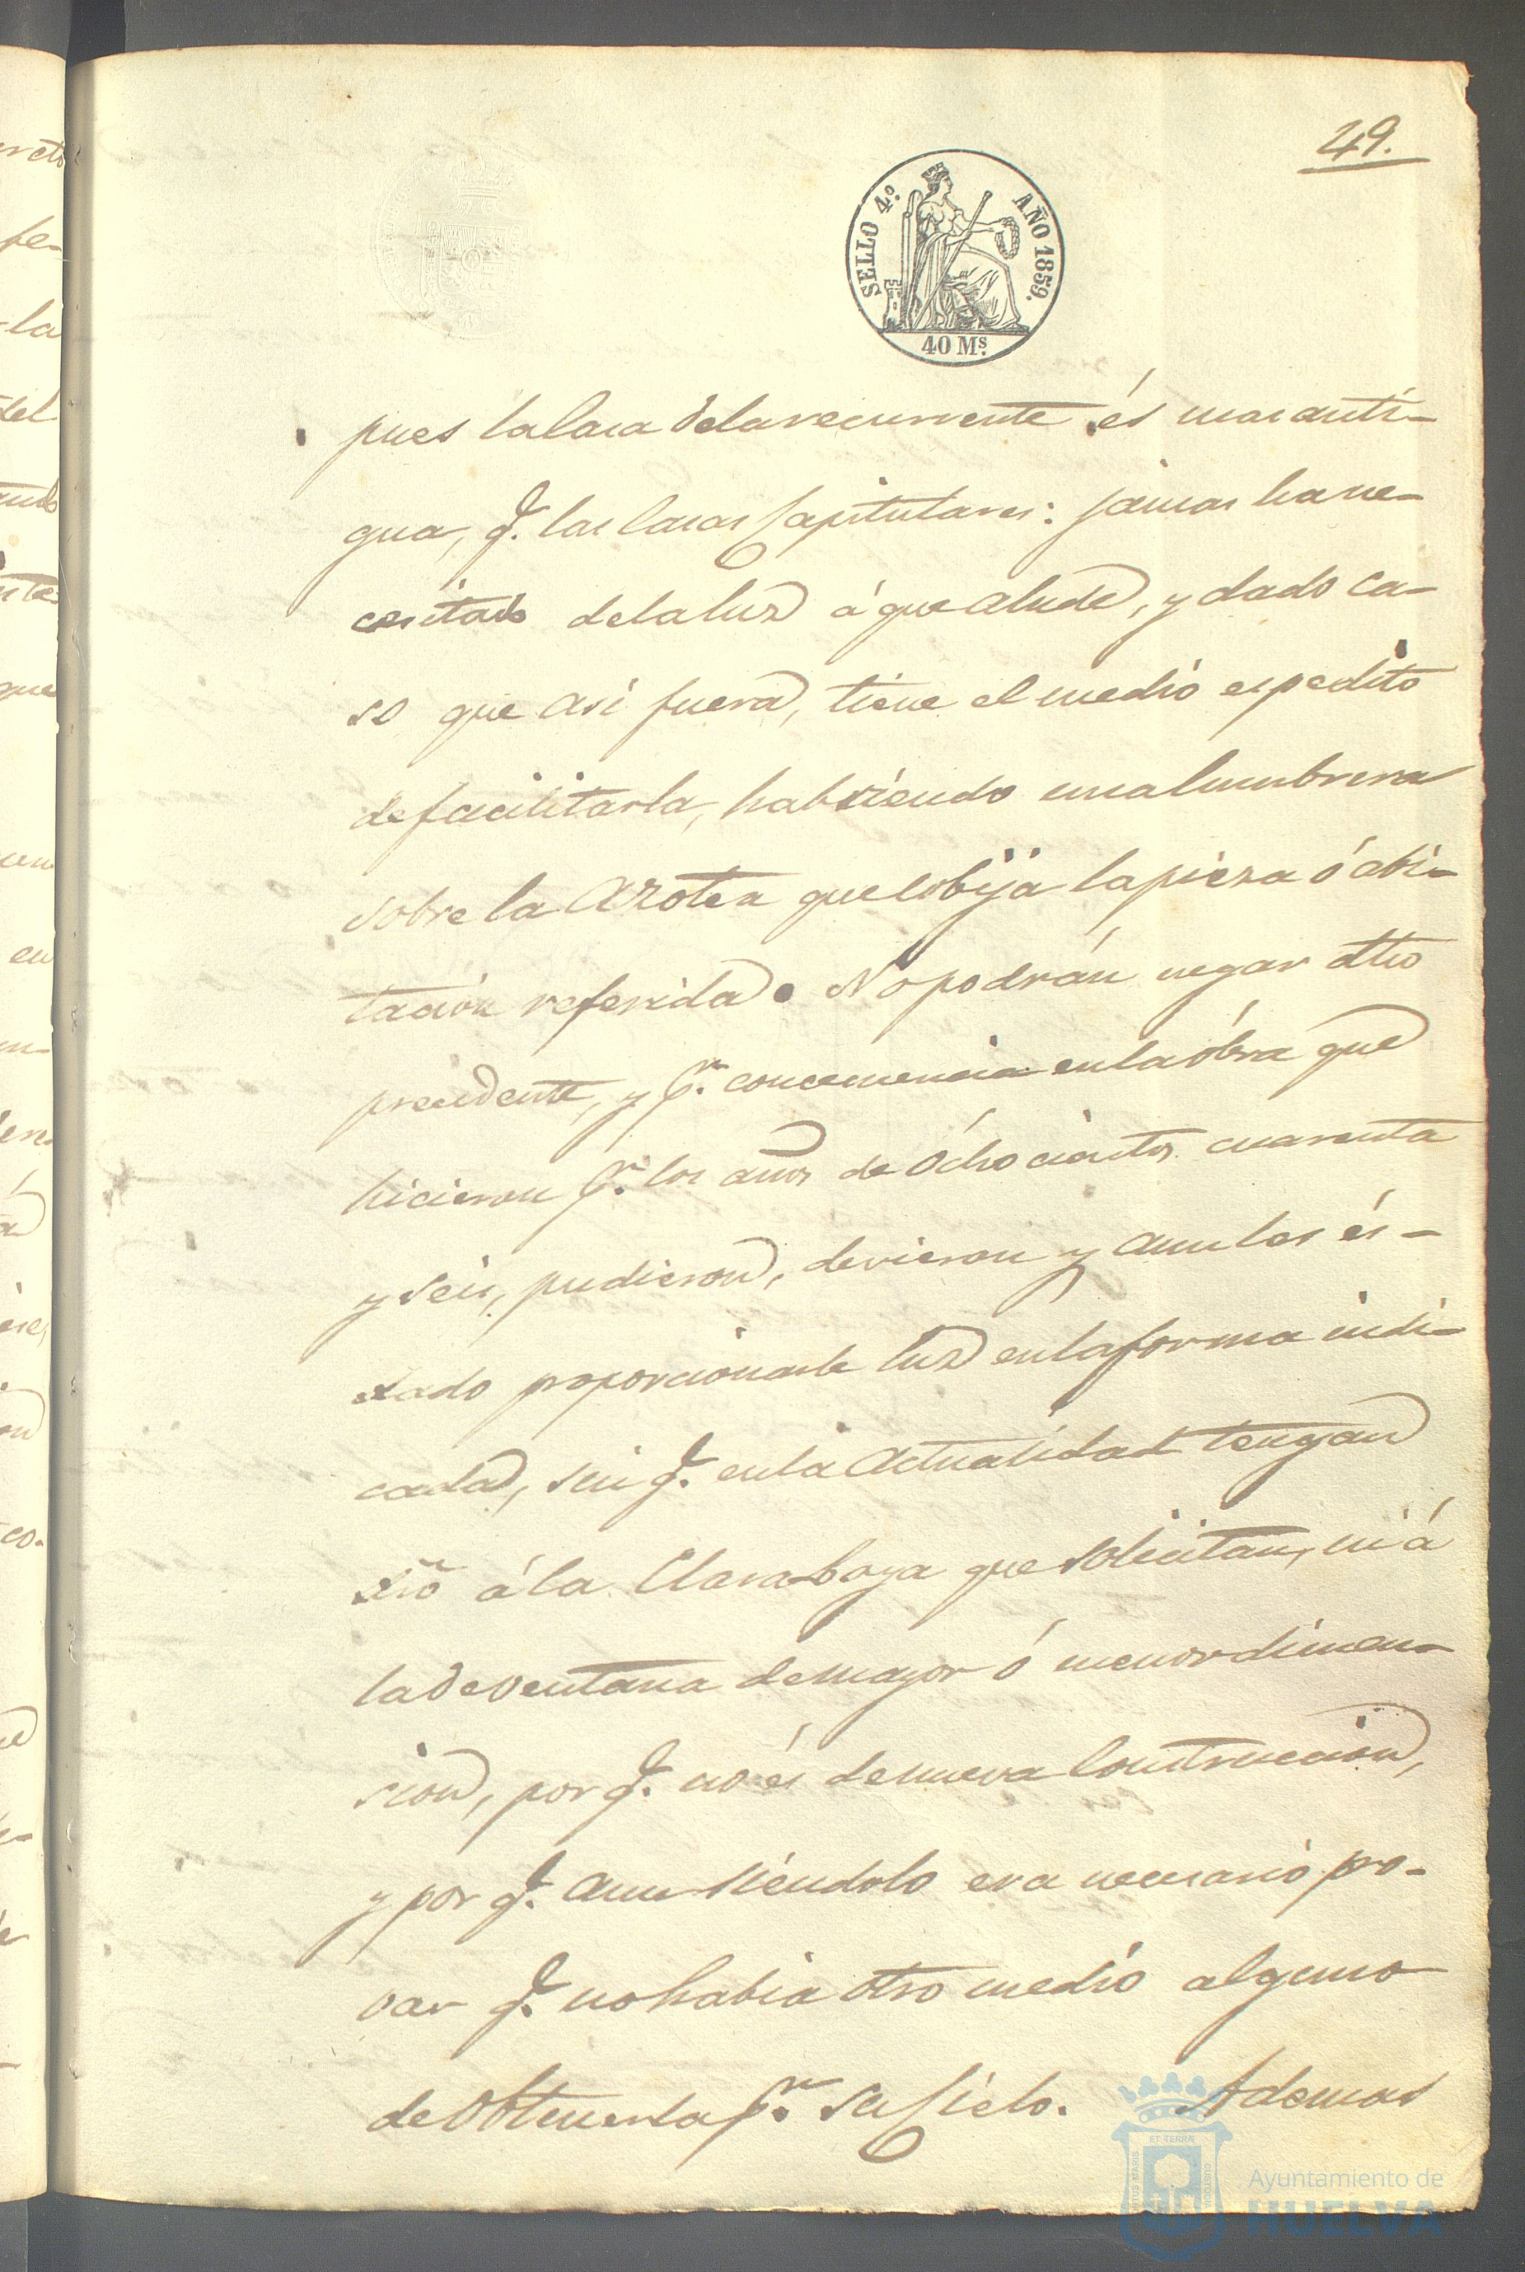 49.
SELLO 4.º AÑO 1859.
40 Ms.
pues la Casa de la recurrente és mas anti-
gua, q.e las Casas Capitulares: jamas ha ne-
cesitado de la luz á que alude, y dado ca-
so que asi fuera, tiene el medio espedito
de facilitarla, habriendo una lumbrera
sobre la Azotea que cobija la pieza ó abi-
tación referida. No podrán negar dho
precedente, y p.r concecuencia en la óbra que
hicieron p.r los años de Óchocientos cuarenta
y seis, pudieron, devieron y aun les és-
tado proporcionarle luz en la forma indi-
cada, sin q.e en la Actualidad tengan
dró á la Claraboya que solicitan, ni á
la de ventana de mayor ó menor dimen-
sion, por q.e no és de nueva Construccion,
y por q.e aun siéndolo era necesario pro-
var q.e no habia otro medio alguno
de obtenerla p.r su Cielo. Ademas
Ayuntamiento de
HUELVA